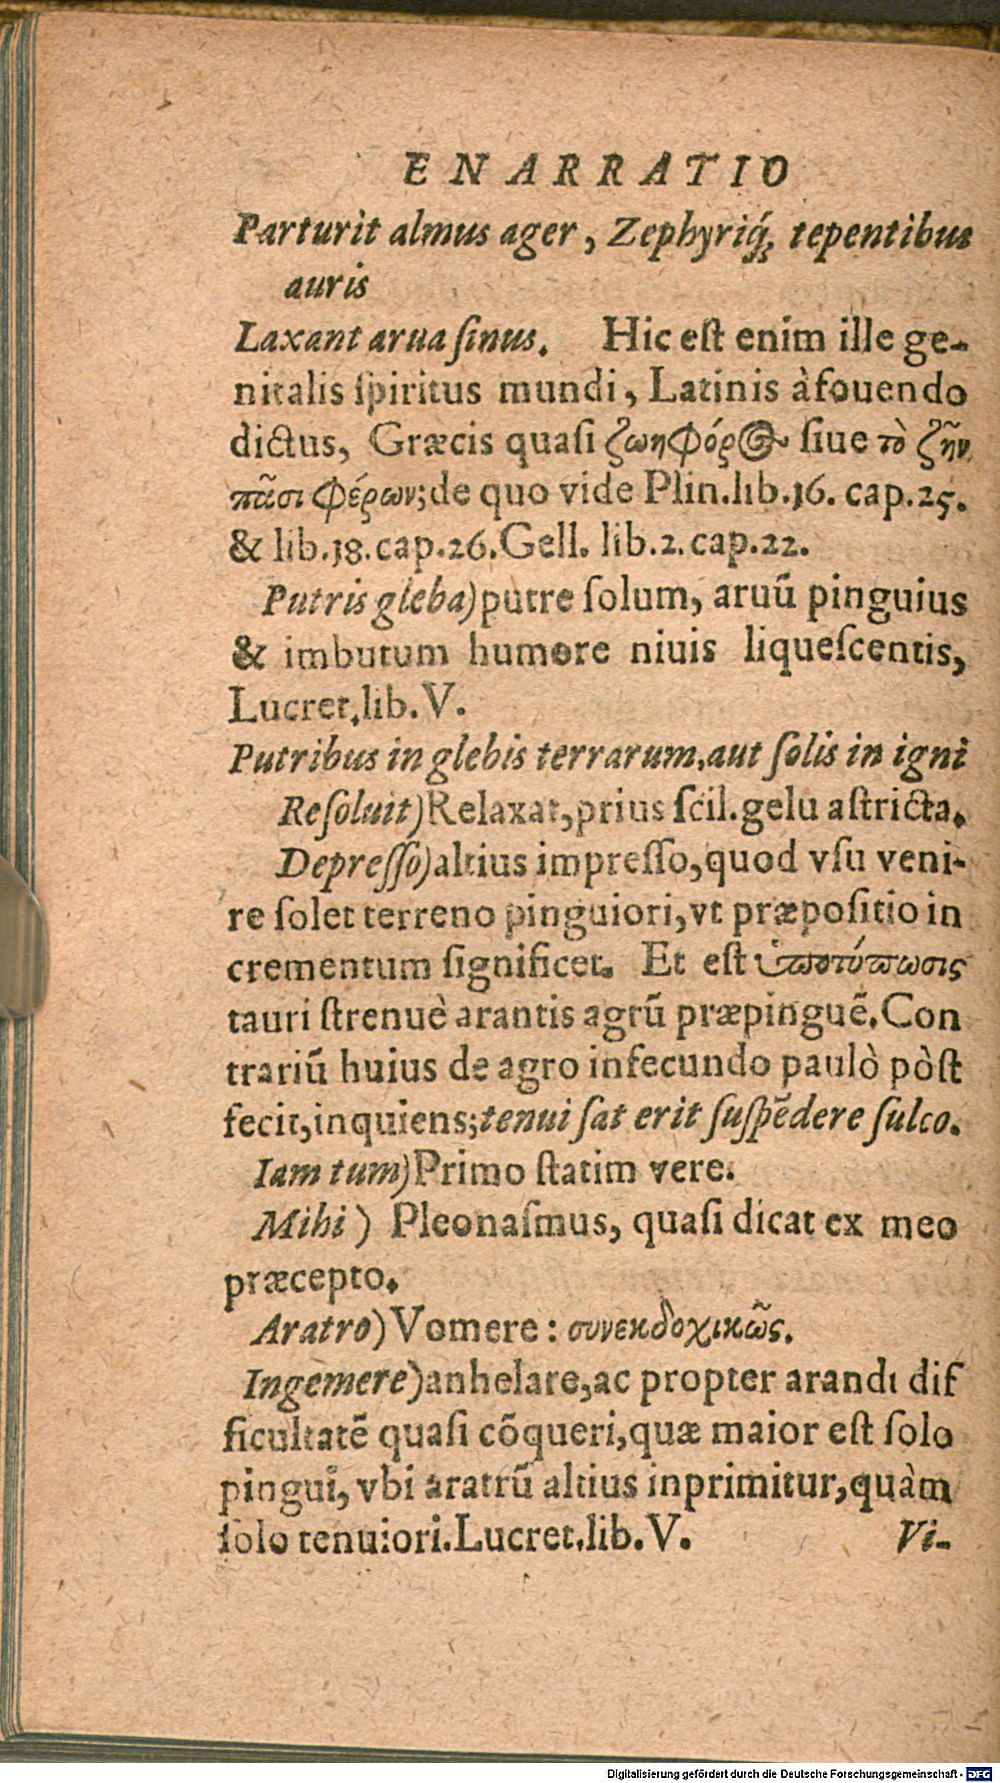 ENARRATIO
Parturit almus ager, Zephyriq́; tepentibus
auris
Laxant arua ſinus. Hic eſt enim ille ge-
nitalis ſpiritus mundi, Latinis àfouendo
dictus, Græcis quaſi ζωηφόρος ſiue τὸ ζῆν
πᾶσι φέρων; de quo vide Plin. lib. 16. cap. 25.
& lib. 18. cap. 26. Gell. lib. 2. cap. 22.
Putris gleba) putre ſolum, aruũ pinguius
& imbutum humore niuis liqueſcentis,
Lucret. lib. V.
Putribus in glebis terrarum, aut ſolis in igni
Reſoluit) Relaxat, prius ſcil. gelu aſtricta.
Depreſſo) altius impreſſo, quod vſu veni-
re ſolet terreno pinguiori, vt præpoſitio in
crementum ſignificet. Et eſt ὑποτύπωσις
tauri ſtrenuè arantis agrũ præpinguẽ. Con
trariũ huius de agro infecundo paulò pòſt
fecit, inquiens; tenui ſat erit ſuſpẽdere ſulco.
Iam tum) Primo ſtatim vere.
Mihi) Pleonaſmus, quaſi dicat ex meo
præcepto.
Aratro) Vomere: συνεκδοχικῶς.
Ingemere) anhelare, ac propter arandi dif
ficultatẽ quaſi cõqueri, quæ maior eſt ſolo
pingui, vbi aratrũ altius inprimitur, quàm
ſolo tenuiori. Lucret. lib. V. Vi-
Digitalisierung gefördert durch die Deutsche Forschungsgemeinschaft - DFG